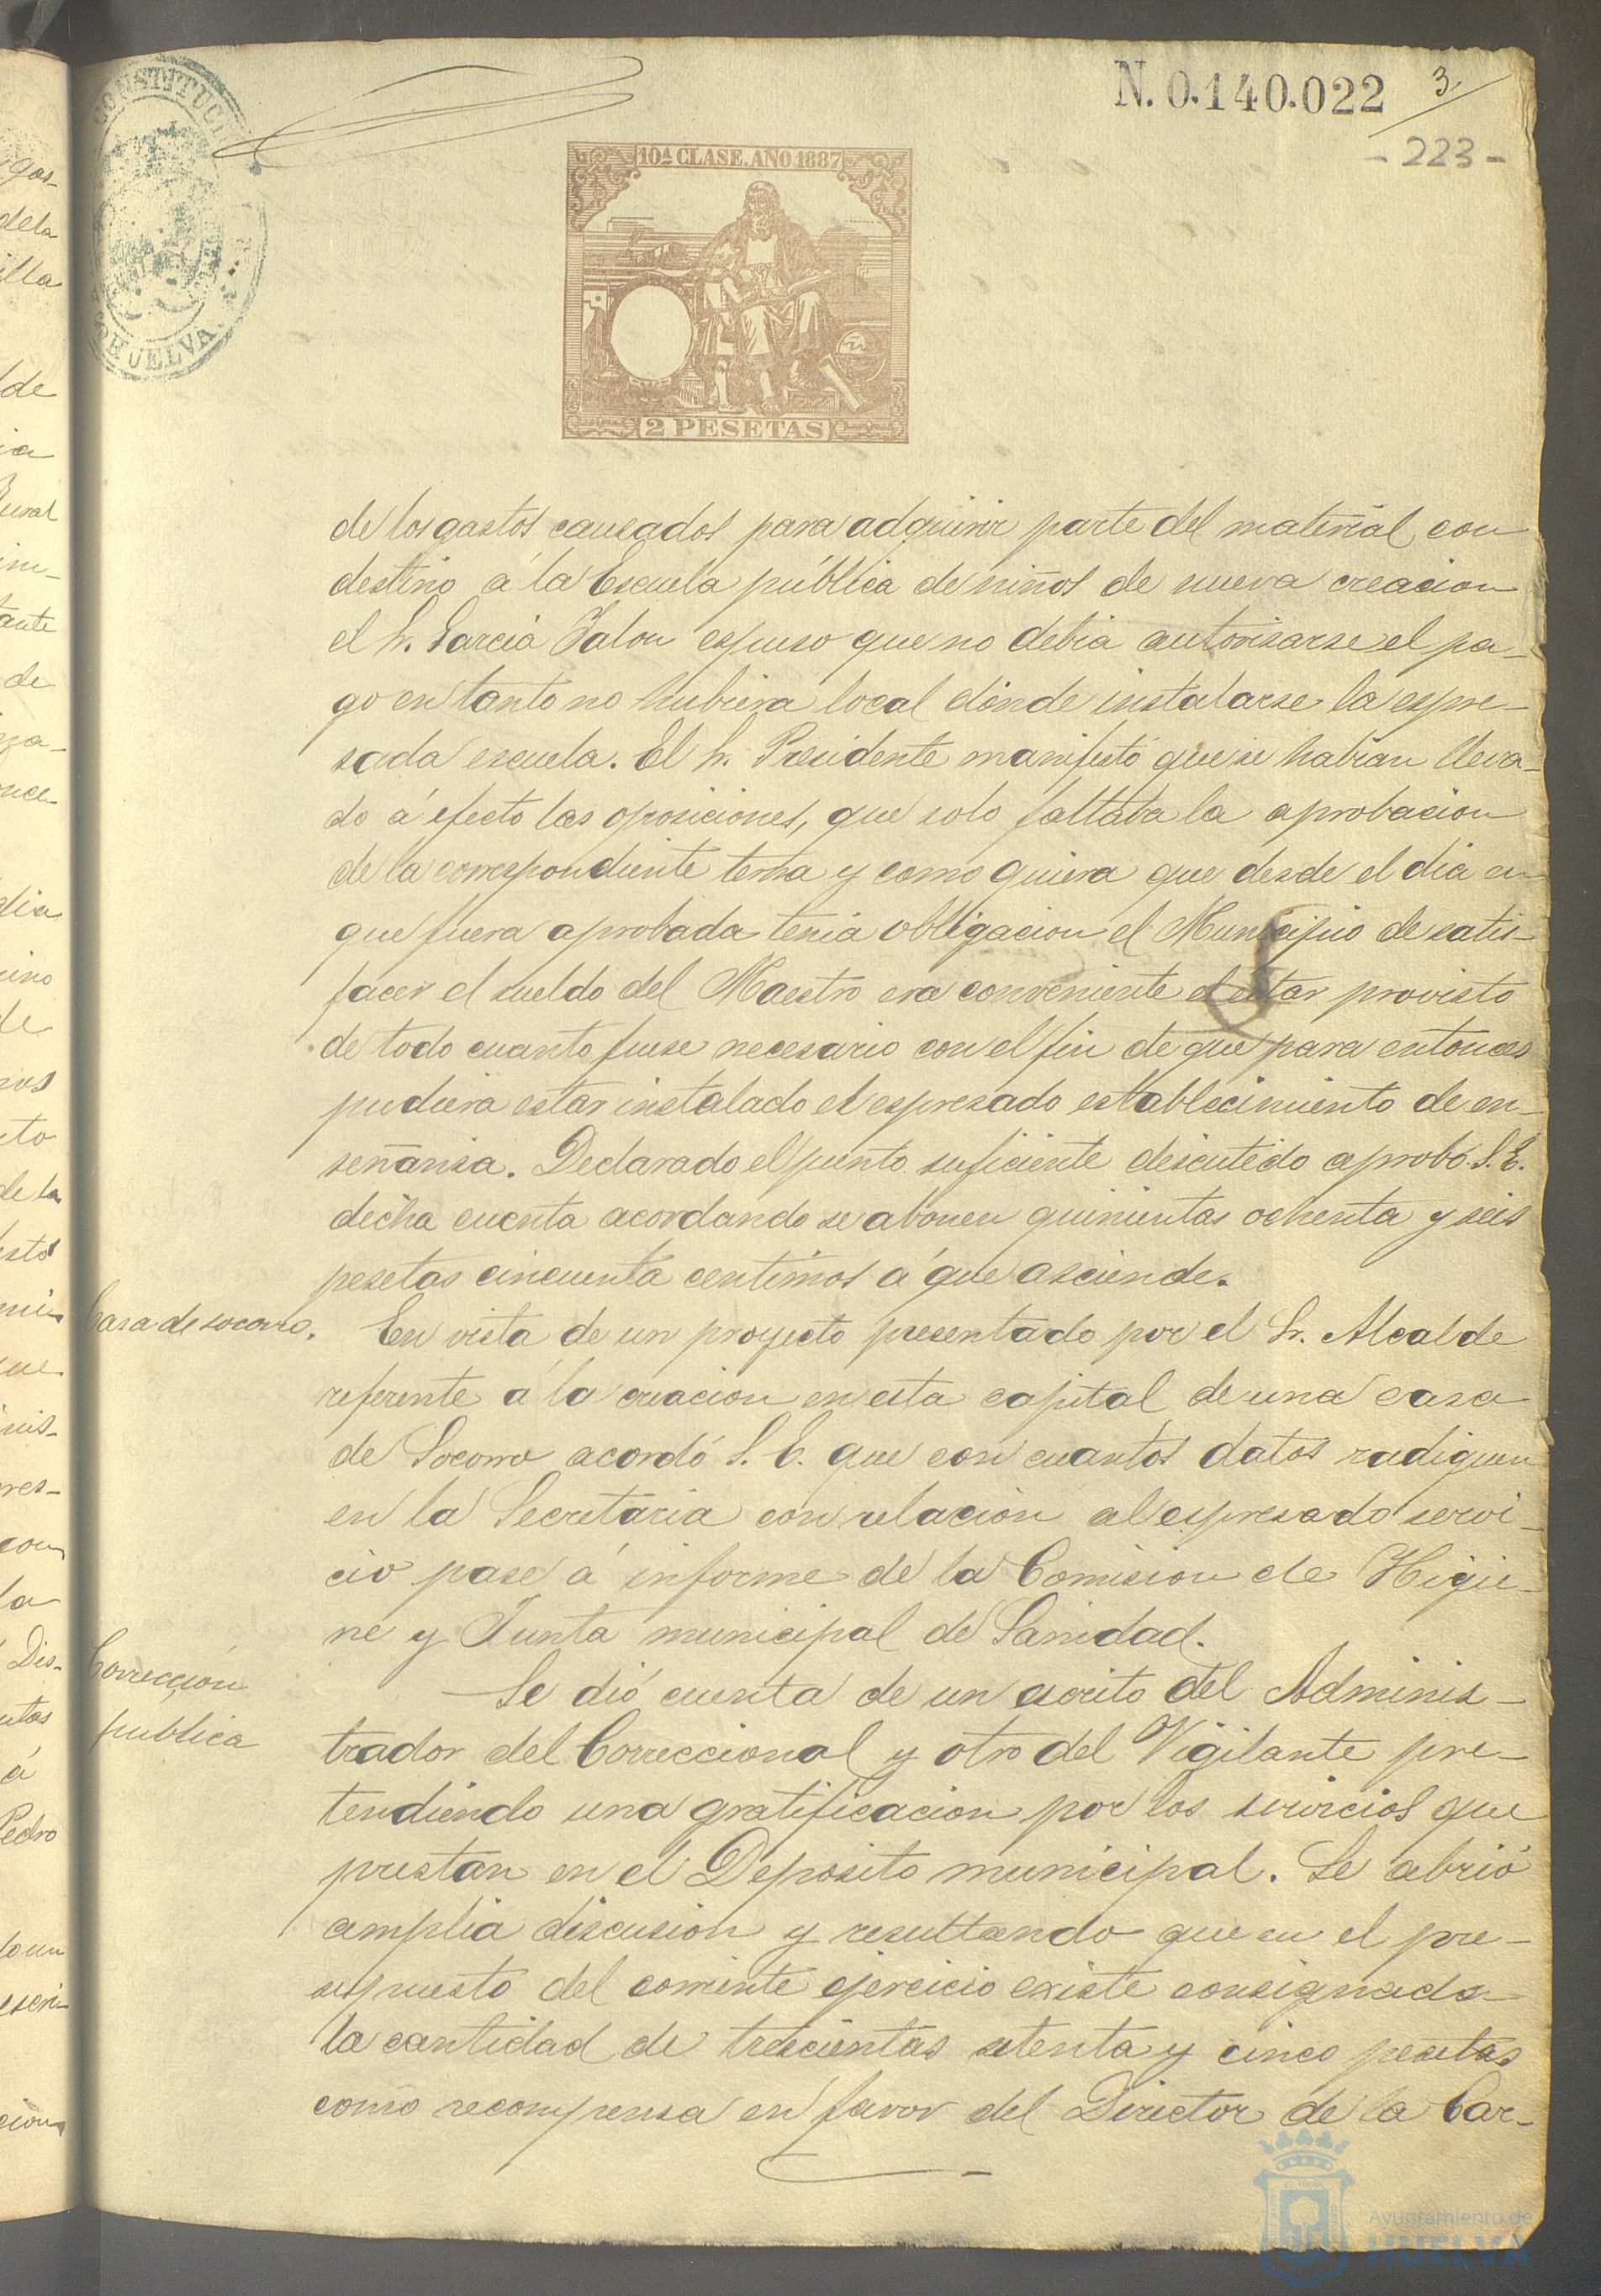 N. 0.140.022
3
- 223 -
CONSTITUCI
HUELVA
10ª CLASE. AÑO 1887
2 PESETAS
de los gastos causados para adquirir parte del material con
destino á la Escuela pública de niños de nueva creacion
el Sr. Garcia Jalon espuso que no debia autorisarse el pa-
go en tanto no hubiera local donde instalarse la espre-
sada escuela. El Sr. Presidente manifestó que se habian lleva-
do á efecto las oposiciones, que solo faltaba la aprobacion
de la correspondiente terna y como quiera que desde el dia en
que fuera aprobada tenia obligacion el Municipio de satis-
facer el sueldo del Maestro era conveniente el estar provisto
de todo cuanto fuese necesario con el fin de que para entonces
pudiera estar instalado el espresado establecimiento de en-
señansa. Declarado el punto suficiente discutido aprobó S. E.
dicha cuenta acordando se abonen quinientas ochenta y seis
pesetas cincuenta centimos á que asciende.
Casa de socorro.
En vista de un proyecto presentado por el Sr. Alcalde
referente á la creacion en esta capital de una casa
de Socorro acordó S. E. que con cuantos datos radiquen
en la Secretaria con relacion al espresado servi-
cio pase á informe de la Comision de Higie-
ne y Junta municipal de Sanidad.
Corrección
publica
Se dió cuenta de un escrito del Adminis-
trador del Correccional y otro del Vigilante pre-
tendiendo una gratificacion por los servicios que
prestan en el Deposito municipal. Se abrió
amplia discusion y resultando que en el pre-
supuesto del corriente ejercicio existe consignada
la cantidad de trescientas setenta y cinco pesetas
como recompensa en favor del Director de la Car-
Ayuntamiento de
HUELVA